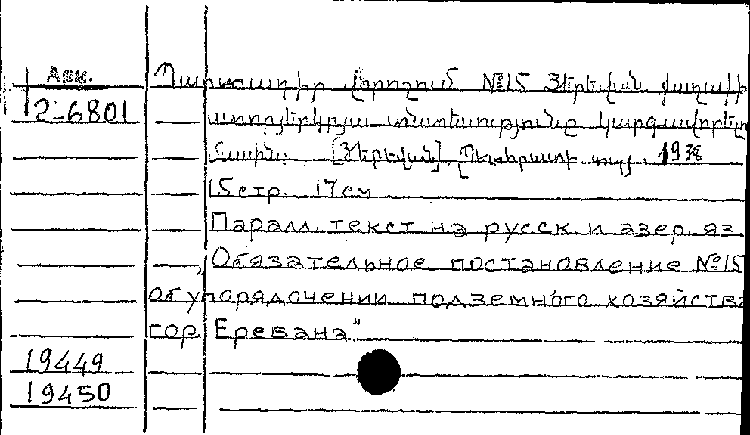 Арм. Պարտադիր վորոշում №15 Յերեվան քաղաքի
12-6801 ստորյերկրյա տնտեսությունը կարգավորելու
մասին. [Յերեվան], Պետհրատ տպ. 193
15 стр. 17 см
Паралл. текст на русск. и азер. яз.
„Обязательное постановление №15
об упорядочении подземного хозяйства
гор. Еревана"
19449
19450